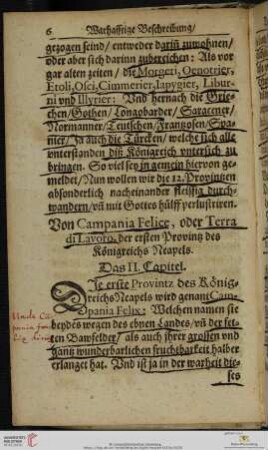 6 Warhafftige Beschreibung/
gezogen seind/ entweder dariñ zuwohnen/
oder aber sich darinn zubereichen: Als vor
gar alten zeiten/ die Morgeri, Oenotrier,
Etoli, Osci, Cimmerier, Iapygier, Libur-
ni vnd Illyrier: Vnd hernach die Grie-
chen/ Gothen/ Longobarder/ Saracener/
Normanner/ Teutschen/ Frantzosen/ Spa-
nier/ Ja auch die Türcken/ welche sich alle
vnterstanden diß Königreich vnterſich zu
bringen. So viel sey in gemein hiervon ge-
meldet/ Nun wollen wir die 12. Provintzen
absonderlich nacheinander fleissig durch-
wandern/ vñ mit Gottes hülff perlustriren.
Von Campania Felice, oder Terra
di Lavoro, der ersten Provintz des
Königreichs Neapels.
Das II. Capitel.
Die erste Provintz des König-
reichs Neapels wird genant Cam-
pania Felix: Welchen namen sie
beydes wegen des ebnen Landes/ vñ der fet-
ten Bawfelder/ als auch jhrer grossen vnd
gantz wunderbarlichen fruchtbarkeit halber
erlanget hat. Vnd ist ja in der warheit die-
ses
Unde Ca-
pania